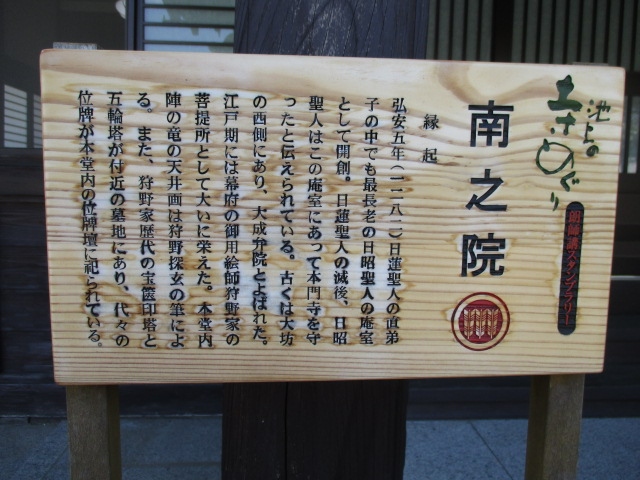 池上の
寺めぐり
御朱印スタンプラリー
南之院
縁起
弘安五年（一二八二）日蓮聖人の直弟
子の中でも最長老の日昭聖人の庵室
として開創。日蓮聖人の滅後、日昭
聖人はこの庵室にあって本門寺を守
ったと伝えられている。古くは大坊
の西側にあり、大成弁院とよばれた。
江戸期には幕府の御用絵師狩野家の
菩提所として大いに栄えた。本堂内
陣の竜の天井画は狩野探玄の筆によ
る。また、狩野家歴代の宝篋印塔と
五輪塔が付近の墓地にあり、代々の
位牌が本堂内の位牌壇に祀られている。